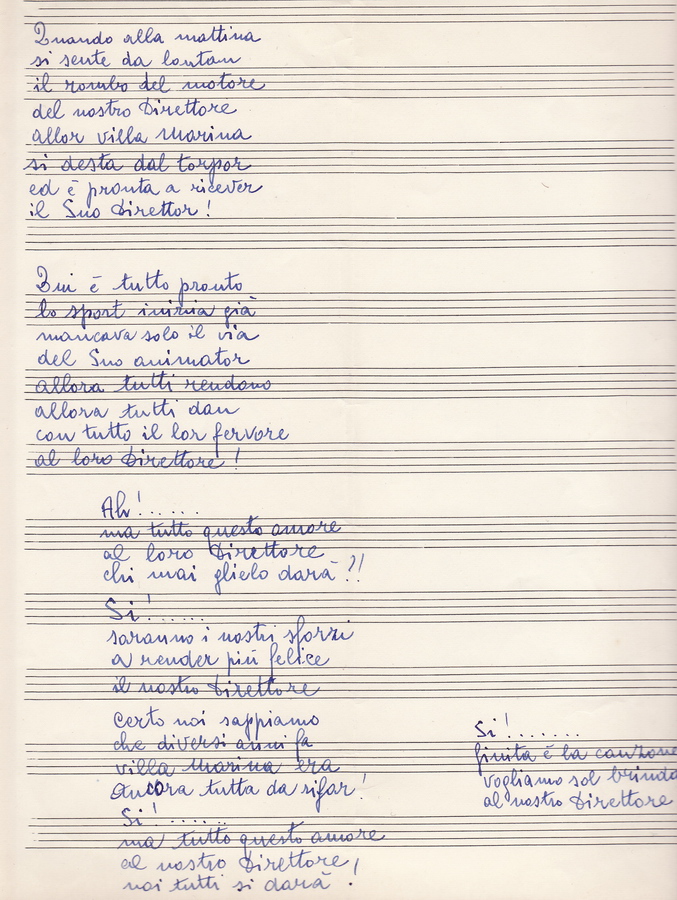 Quando alla mattina
si sente da lontan
il rombo del motore
del nostro Direttore
allor villa Marina
si desta dal torpor
ed è pronta a ricever
il Suo Direttor!
Qui è tutto pronto
lo sport inizia già
mancava solo il via
del Suo animator
allora tutti rendono
allora tutti dan
con tutto il lor fervore
al loro Direttore!
Ah!......
ma tutto questo amore
al loro Direttore
chi mai glielo darà?!
Si!......
saranno i nostri sforzi
a render più felice
il nostro Direttore
Certo noi sappiamo
che diversi anni fa
villa Marina era
Ancora tutta da rifar!
Si!......
ma tutto questo amore
al nostro Direttore,
noi tutti si darà.
Si!.......
finita è la canzone
vogliamo sol brinda
al nostro Direttore